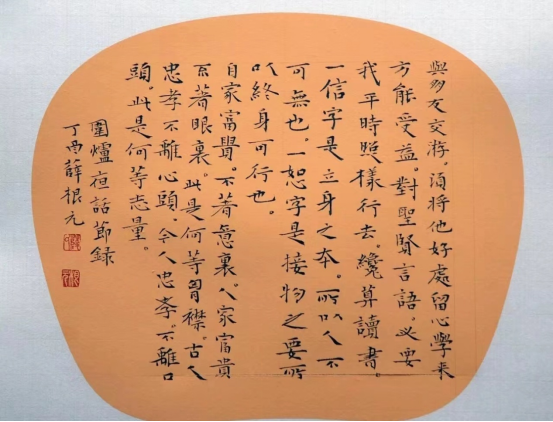 與朋友交游。須將他好處留心學來
方能受益。對聖賢言語。必要
我平時照樣行去。纔算讀書。
一信字是立身之本。所以人不
可無也。一恕字是接物之要所
以終身可行也。
自家富貴。不著意裏。人家富貴
不著眼裏。此是何等胷襟。古人
忠孝不離心頭。今人忠孝。不離口
頭。此是何等志量。
圍爐夜話節録
丁酉薛根元